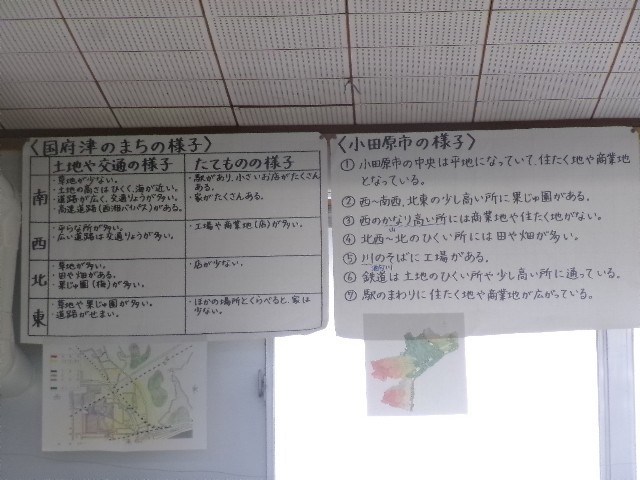 〈国府津のまちの様子〉
土地や交通の様子
たてものの様子
南
・草地が少ない。
・土地の高さはひくく、海が近い。
・道路が広く、交通りょうが多い。
・高速道路(西湘バイパス)がある。
・駅があり、小さいお店がたくさん
ある。
・家がたくさんある。
西
・平らな所が多い。
・広い道路は交通りょうが多い。
・工場や商業地(店)が多い。
北
・草地が多い。
・田や畑がある。
・果じゅ園(梅)が多い。
・店が少ない。
東
・草地や果じゅ園が多い。
・道路がせまい。
・ほかの場所とくらべると、家は
少ない。
〈小田原市の様子〉
① 小田原市の中央は平地になっていて、住たく地や商業地
となっている。
② 西〜南西、北東の少し高い所に果じゅ園がある。
③ 西のかなり高い所には商業地や住たく地がない。
山
④ 北西〜北のひくい所には田や畑が多い。
⑤ 川のそばに工場がある。
⑥ 鉄道は土地のひくい所や少し高い所に通っている。
⑦ 駅のまわりに住たく地や商業地が広がっている。